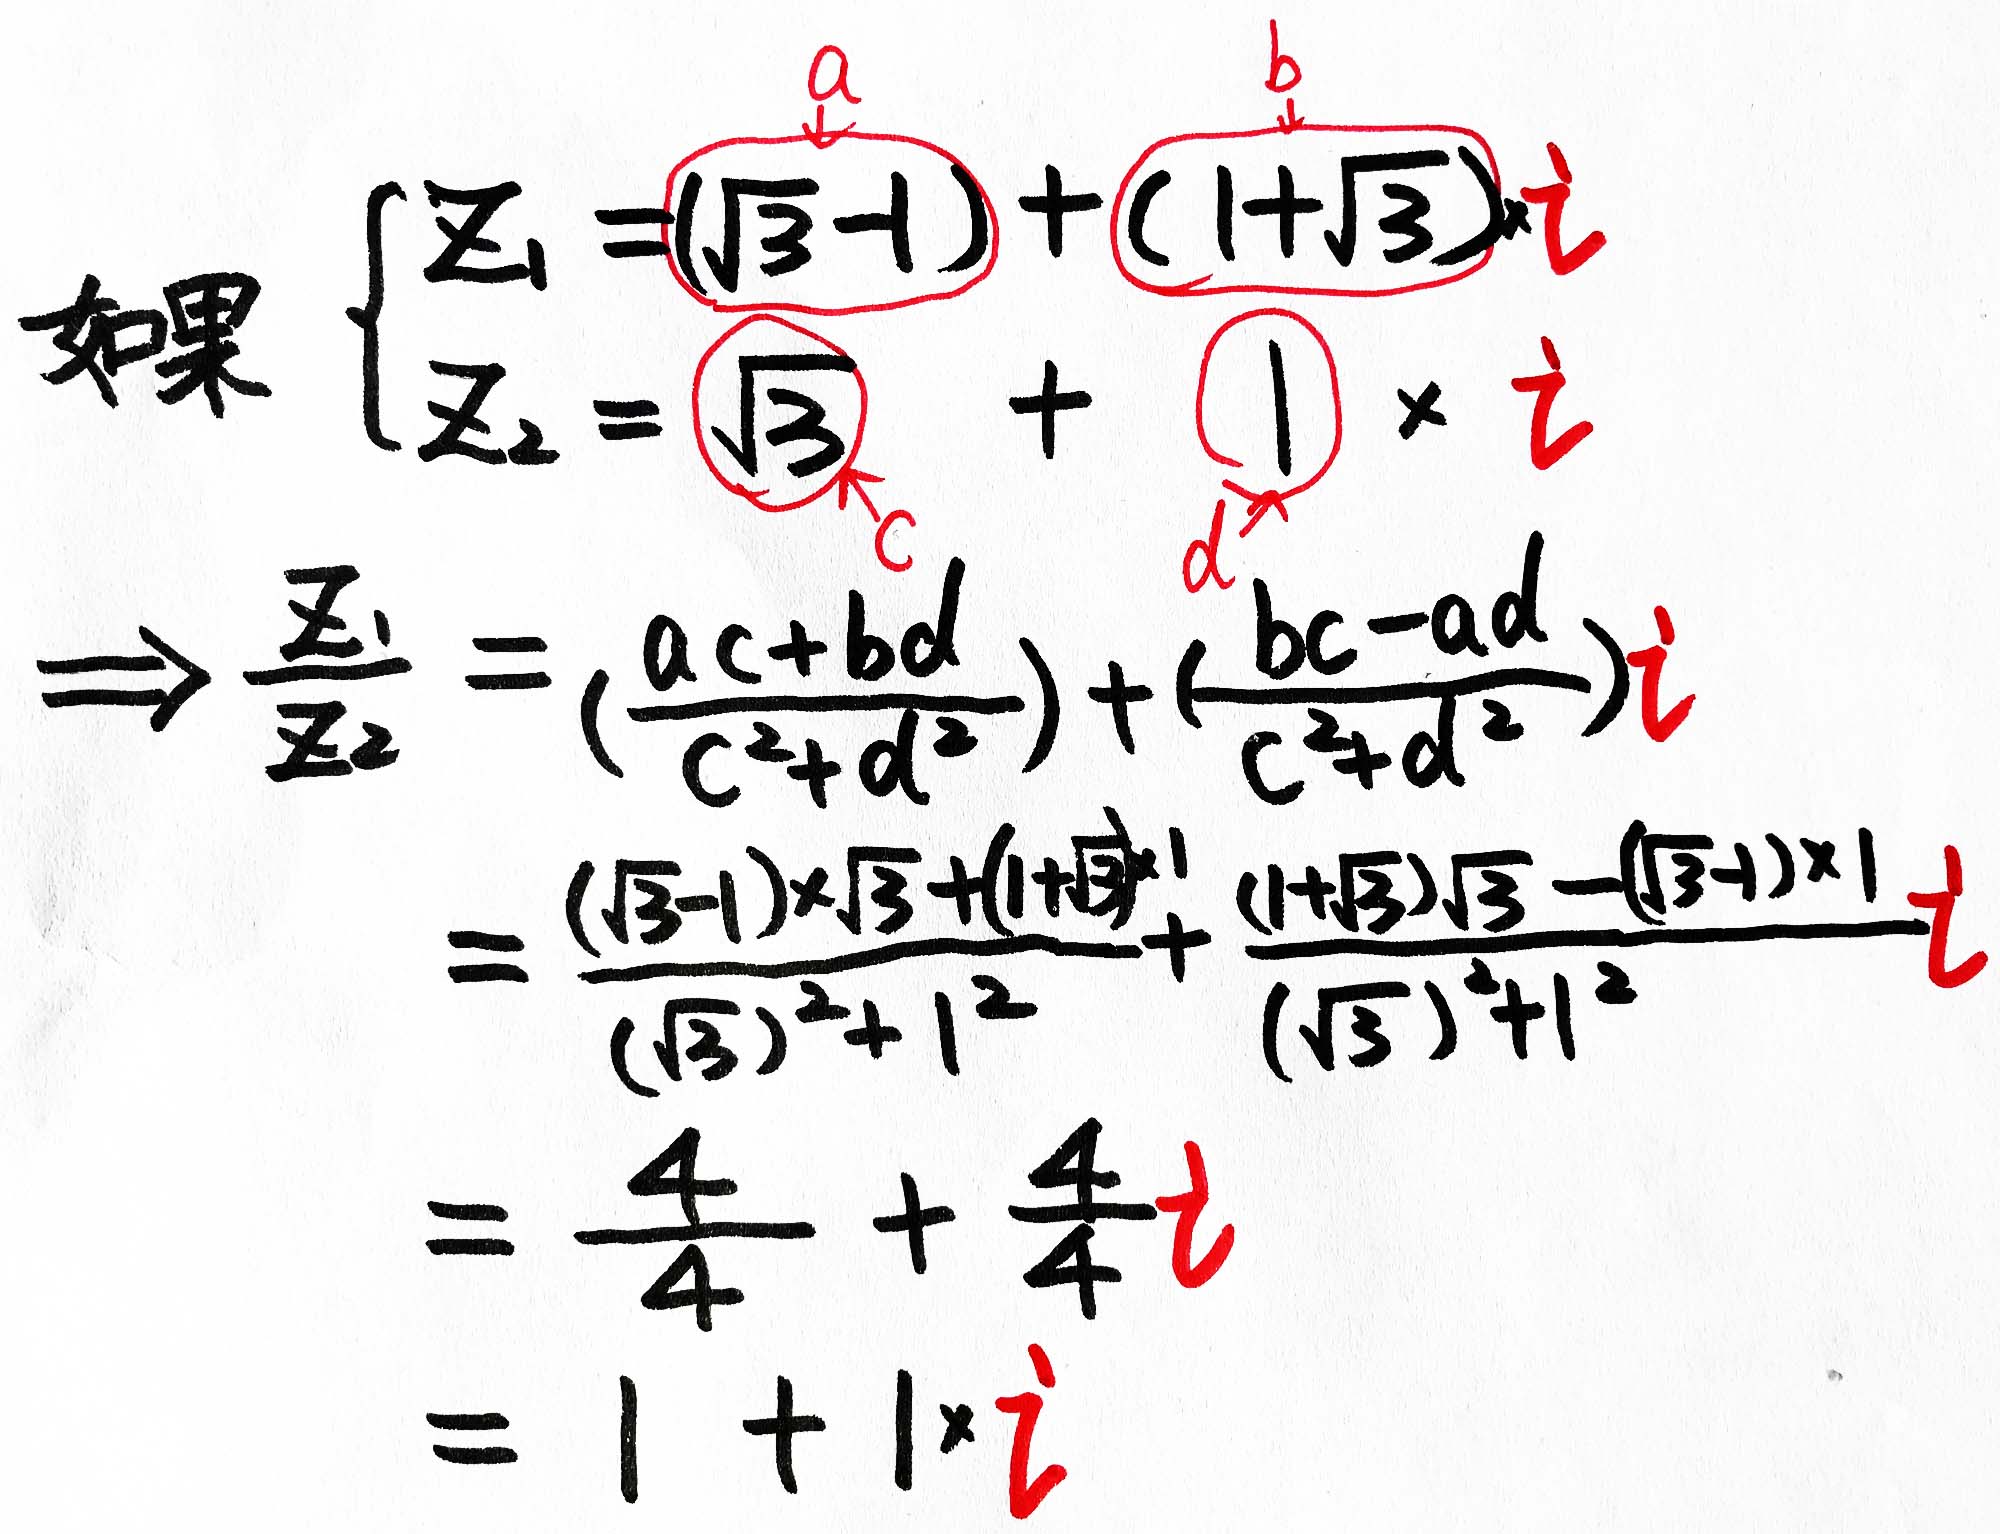 a b
如果 { Z₁ = (√3-1) + (1+√3)×i
Z₂ = √3 + 1 × i
c d
⟹ Z₁/Z₂ = ((ac+bd)/(c²+d²)) + ((bc-ad)/(c²+d²))i
= ((√3-1)×√3+(1+√3)×1)/((√3)²+1²) + ((1+√3)√3-(√3-1)×1)/((√3)²+1²) i
= 4/4 + 4/4 i
= 1 + 1×i